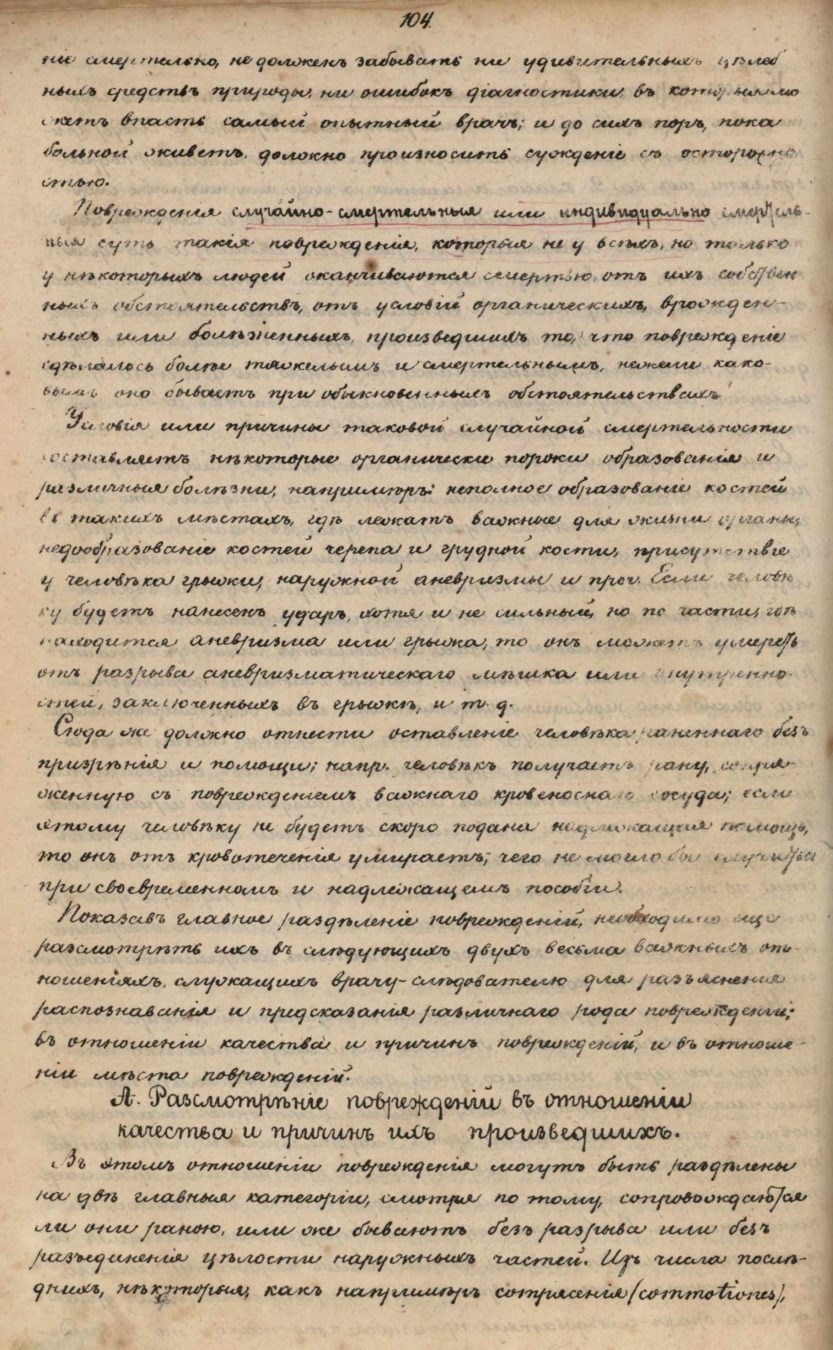 104.
ніе смертельно, не должен забывать ни удивительныхъ цѣлеб
ныхъ средствъ природы, ни ошибокъ діагностики въ которыя мо
жетъ впасть самый опытный врачъ; и до сихъ поръ, пока
больной живетъ, должно произносить сужденіе съ осторожно
стью.
Поврежденія случайно-смертельныя или индивидуально смертель-
ныя суть такія поврежденія, которыя не у всѣхъ, но только
у нѣкоторыхъ людей оканчиваются смертью отъ ихъ собствен
ныхъ обстоятельствъ, отъ условій органическихъ, врожден-
ныхъ или болѣзненныхъ, произведшихъ то, что поврежденіе
сдѣлалось болѣе тяжелымъ и смертельнымъ, нежели како-
вымъ оно бываетъ при обыкновенныхъ обстоятельствахъ
Условія или причины таковой случайной смертельности
составляетъ нѣкоторые органическіе пороки образованія и
различныя болѣзни, напримѣръ: неполное образованіе костей
въ такихъ мѣстахъ, гдѣ лежатъ важные для жизни органы,
недообразованіе костей черепа и грудной кости, присутствіе
у человѣка грыжи, наружной аневризмы и проч. Если человѣ
ку будетъ нанесенъ ударъ, хотя и не сильный, но по части, гдѣ
находится аневризма или грыжа, то онъ можетъ умереть
отъ разрыва аневризматическаго мѣшка или внутренно
стей, заключенныхъ въ грыжѣ, и т. д.
Сюда же должно отнести оставленіе человѣка раненнаго безъ
призрѣнія и помощи; напр. человѣкъ получаетъ рану, сопря-
женную съ поврежденіемъ важнаго кровеноснаго сосуда; если
этому человѣку не будетъ скоро подана надлежащая помощь,
то онъ отъ кровотеченія умираетъ, чего не могло бы случиться
при своевременномъ и надлежащемъ пособіи.
Показавъ главное раздѣленіе поврежденій, необходимо еще
разсмотрѣть ихъ въ слѣдующихъ двухъ весьма важныхъ от-
ношеніяхъ, служащихъ врачу-слѣдователю для разъясненія
распознаванія и предсказанія различнаго рода поврежденій;
въ отношеніи качества и причинъ поврежденій, и въ отноше-
ніи мѣста поврежденій.
А. Разсмотрѣніе поврежденій въ отношеніи
качества и причинъ ихъ произведшихъ.
Въ этомъ отношеніи поврежденія могутъ быть раздѣлены
на двѣ главныя категоріи, смотря по тому, сопровождаются
ли они раною, или же бываютъ безъ разрыва или безъ
разъединенія цѣлости наружныхъ частей. Изъ числа послѣ-
днихъ, нѣкоторыя, какъ напримѣръ сотрясенія (commotiones),